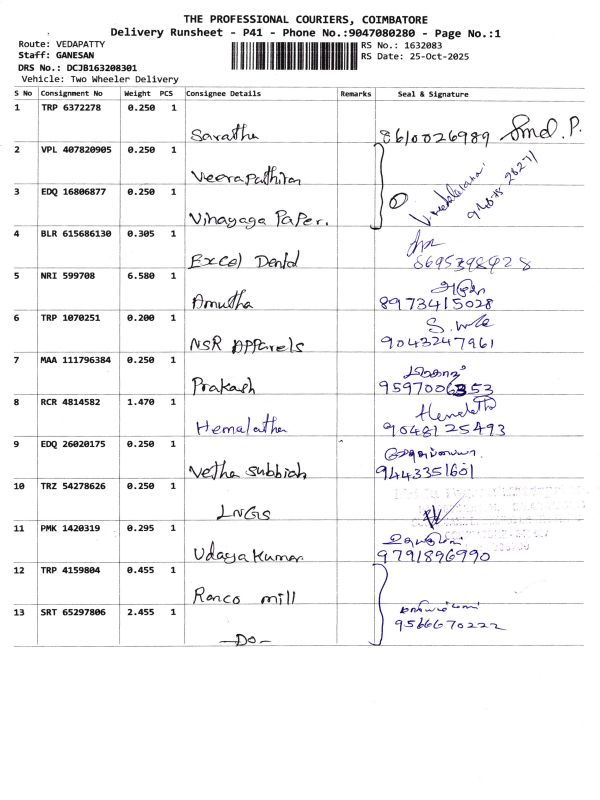 THE PROFESSIONAL COURIERS, COIMBATORE
Delivery Runsheet - P41 - Phone No.:9047080280 - Page No.:1
Route: VEDAPATTY
Staff: GANESAN
DRS No.: DCJB163208301
Vehicle: Two Wheeler Delivery
RS No.: 1632083
RS Date: 25-Oct-2025
S No Consignment No Weight PCS Consignee Details Remarks Seal & Signature
1 TRP 6372278 0.250 1
Saratha 8610026989
2 VPL 407820905 0.250 1
Veerapathiran
3 EDQ 16806877 0.250 1
Vinayaga Paper.
4 BLR 615686130 0.305 1
Excel Dental
5 NRI 599708 6.580 1
Amutha 8973415028
6 TRP 1070251 0.200 1
NSR Apparels 9043247961
7 MAA 111796384 0.250 1
Prakash 9597006353
8 RCR 4814582 1.470 1
Hemalatha 9048125493
9 EDQ 26020175 0.250 1
Vetha Subbiah 9443351601
10 TRZ 54278626 0.250 1
LNGS
11 PMK 1420319 0.295 1
Udaya Kumar 9791896990
12 TRP 4159804 0.455 1
Ranco mill
13 SRT 65297806 2.455 1
9566670222
-Do-